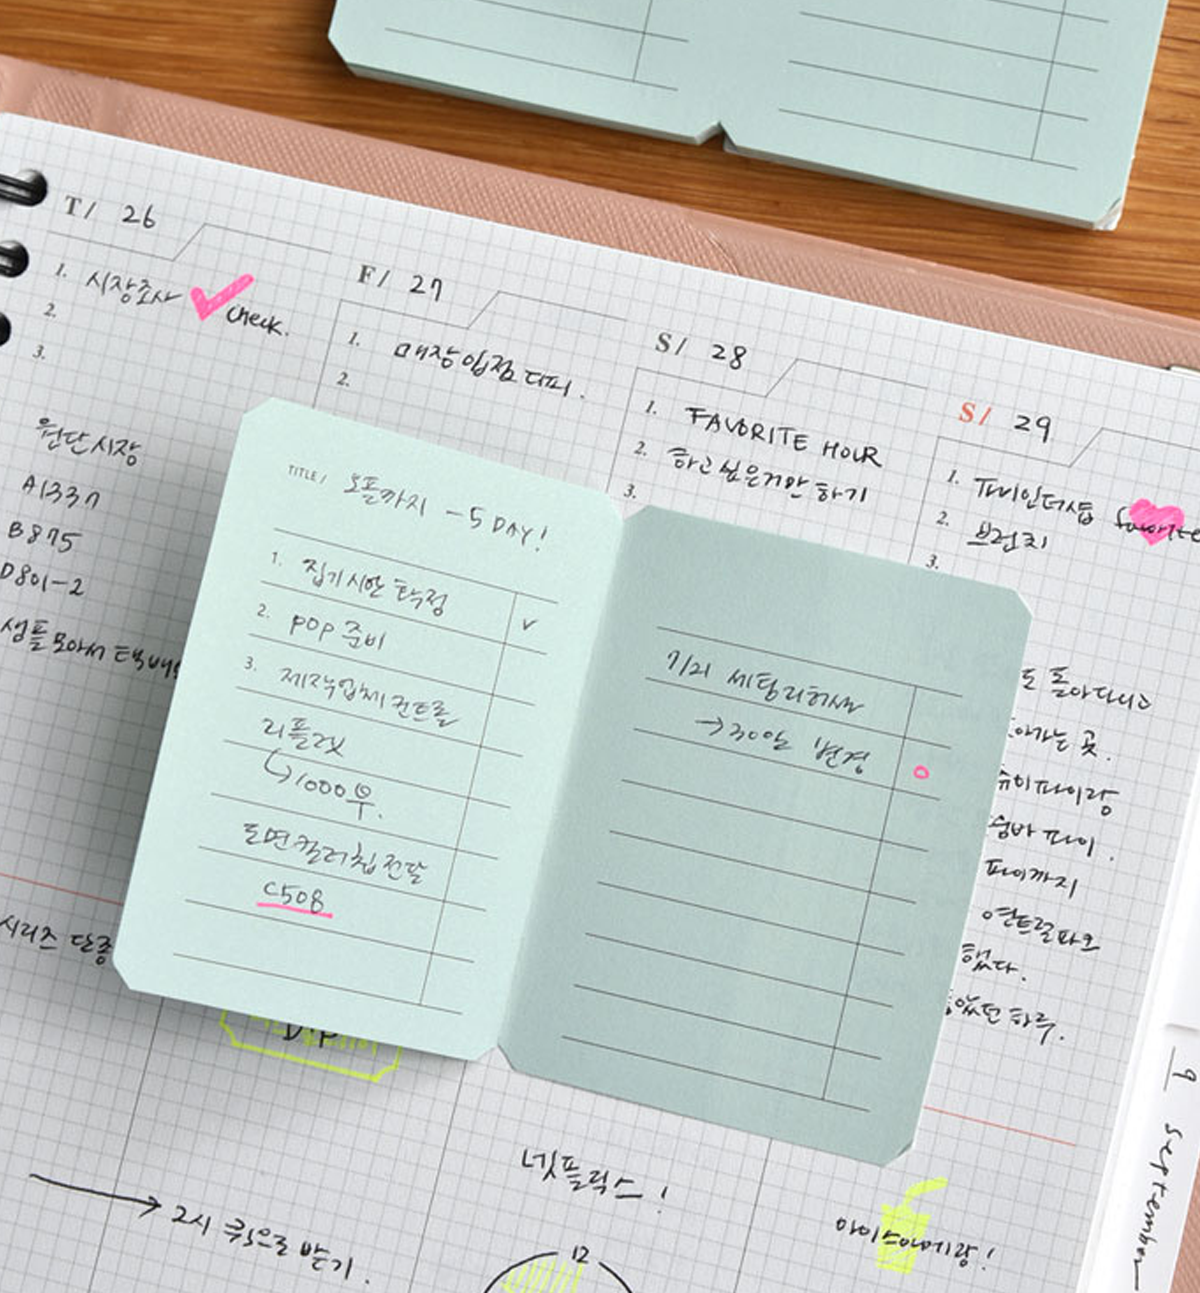 T/ 26
1. 시장조사 check.
2.
3.
원단시장
A1337
B875
D801-2
샘플모아서 택배
시리즈 단종
F/ 27
1. 매장입점 디피.
2.
S/ 28
1. FAVORITE HOUR
2. 하고싶은거만 하기
3.
S/ 29
1. favorite
2. 브런치
3.
TITLE/ 오픈까지 -5 DAY!
1. 집기시안 확정 v
2. POP 준비
3. 제작업체 컨트롤
리플렛
↳1000부.
도면컬러칩전달
C508
7/21 세팅리허설
→30일 변경
도 돌아다니고
아가는 곳.
슈이파이랑
파이.
파이까지
연트럴파크
했다.
었던 하루.
D.P
→ 2시 퀵으로 받기.
넷플릭스!
12
아이스아메랑!
9 september